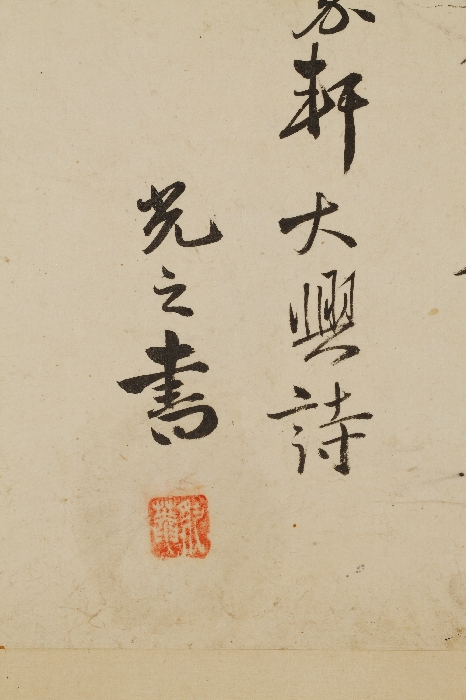 軒大興詩
光之書